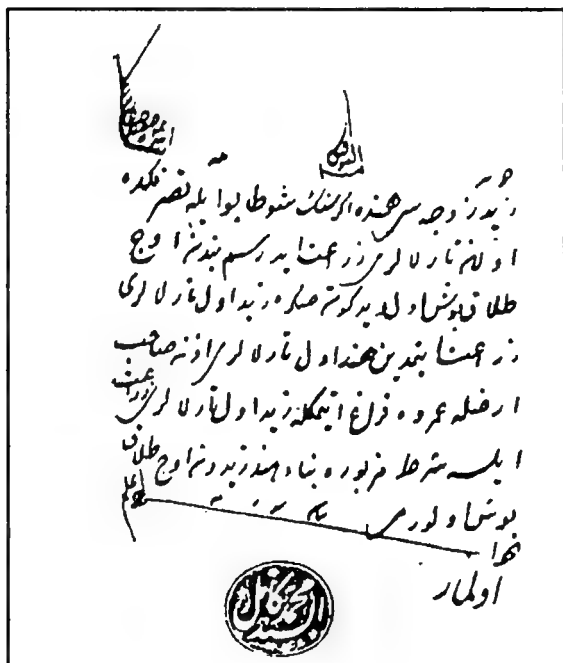 زيد زوجه سى هنده اكر سنك شو طابو ايله تصرفكده
اولان تارلالرى زرعت ايدرسم بندن اوج
طلاق بوش اول ديدكدن صكره زيد اول تارلالرى
زرعت ايتمدين هند اول تارلالرى اذن صاحب
ارضله عمروه فراغ ايتمكله زيد اول تارلالرى زراعت
ايلسه شرط مزبوره بناء هند زيددن اوج طلاق
بوش اولورمى
اولماز
السيد محمد كامل